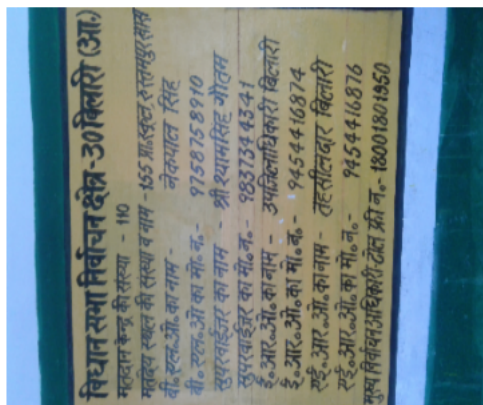 विधान सभा निर्वाचन क्षेत्र-30 बिलारी (आ.)
मतदान केन्द्र की संख्या - 110
मतदेय स्थल की संख्या व नाम - 155 प्रा. स्कूल रुस्तमपुर खास
बी. एल. ओ. का नाम - नेकपाल सिंह
बी. एल. ओ. का मो. न. - 9758758910
सुपरवाईजर का नाम - श्री श्यामसिंह गौतम
सुपरवाईजर का मो. न. - 9837344341
ई. आर. ओ. का नाम - उपजिलाधिकारी बिलारी
ई. आर. ओ. का मो. न. - 9454416874
एई. आर. ओ. का नाम - तहसीलदार बिलारी
एई. आर. ओ. का मो. न. - 9454416876
मुख्य निर्वाचन अधिकारी टोल फ्री न. - 18001801950